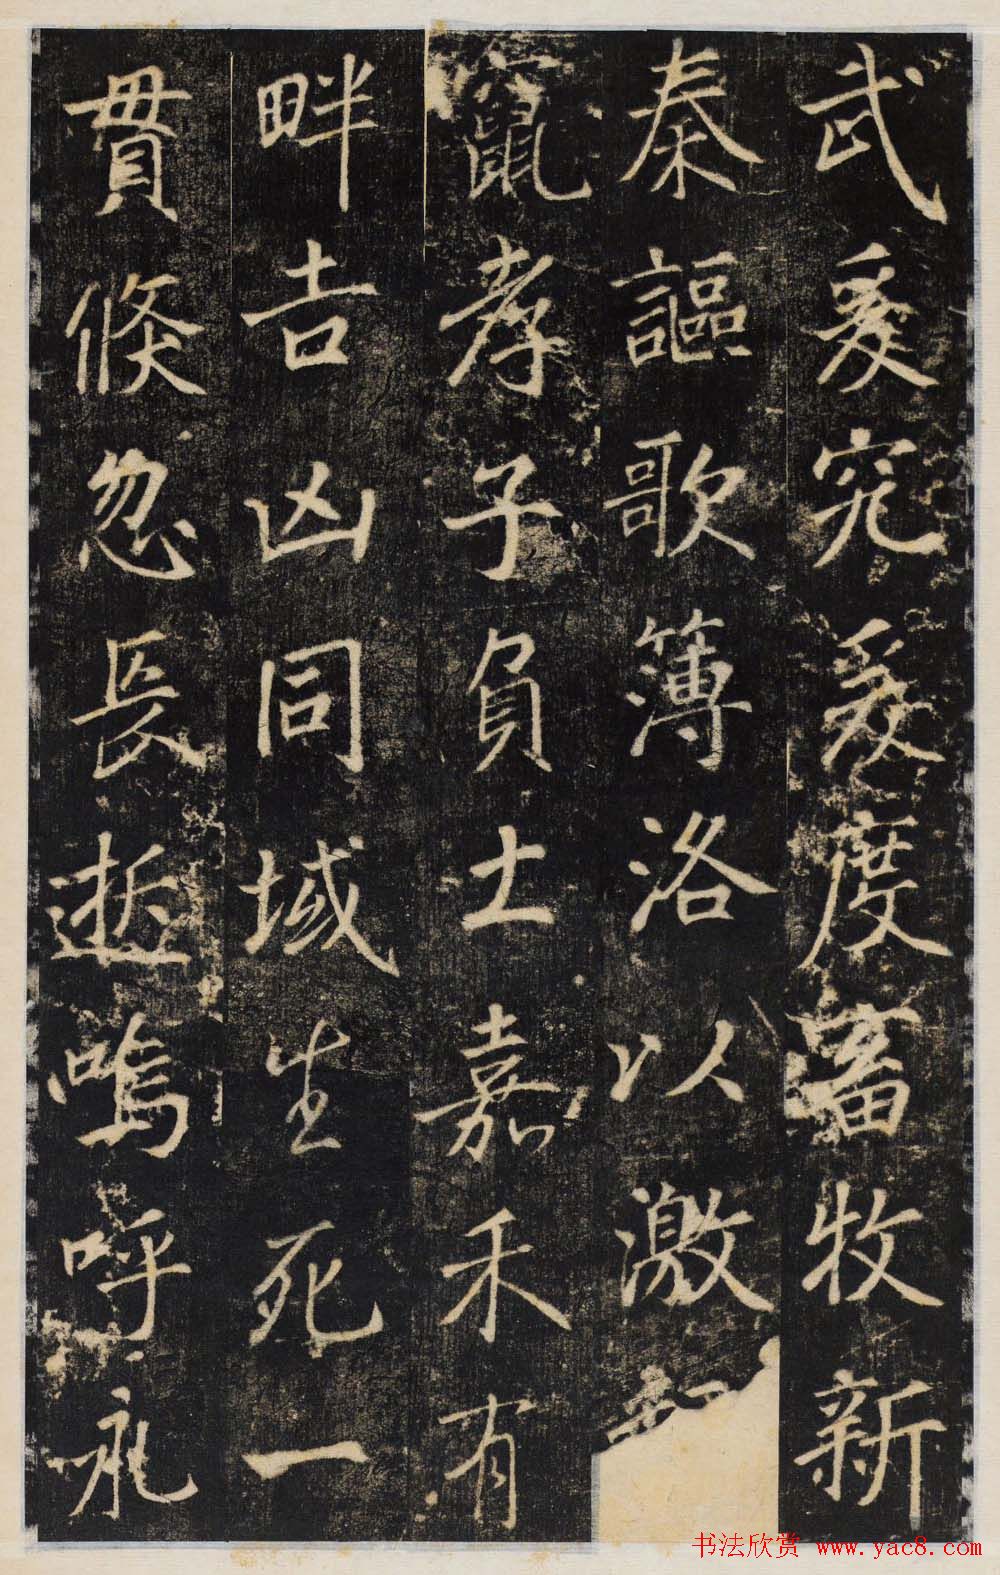 武爰究爰度畜牧新
秦謳歌簿洛以激
竄孝子負土嘉禾有
畔吉凶同域生死一
貫倏忽長逝嗚呼永
书法欣赏 www.yac8.com